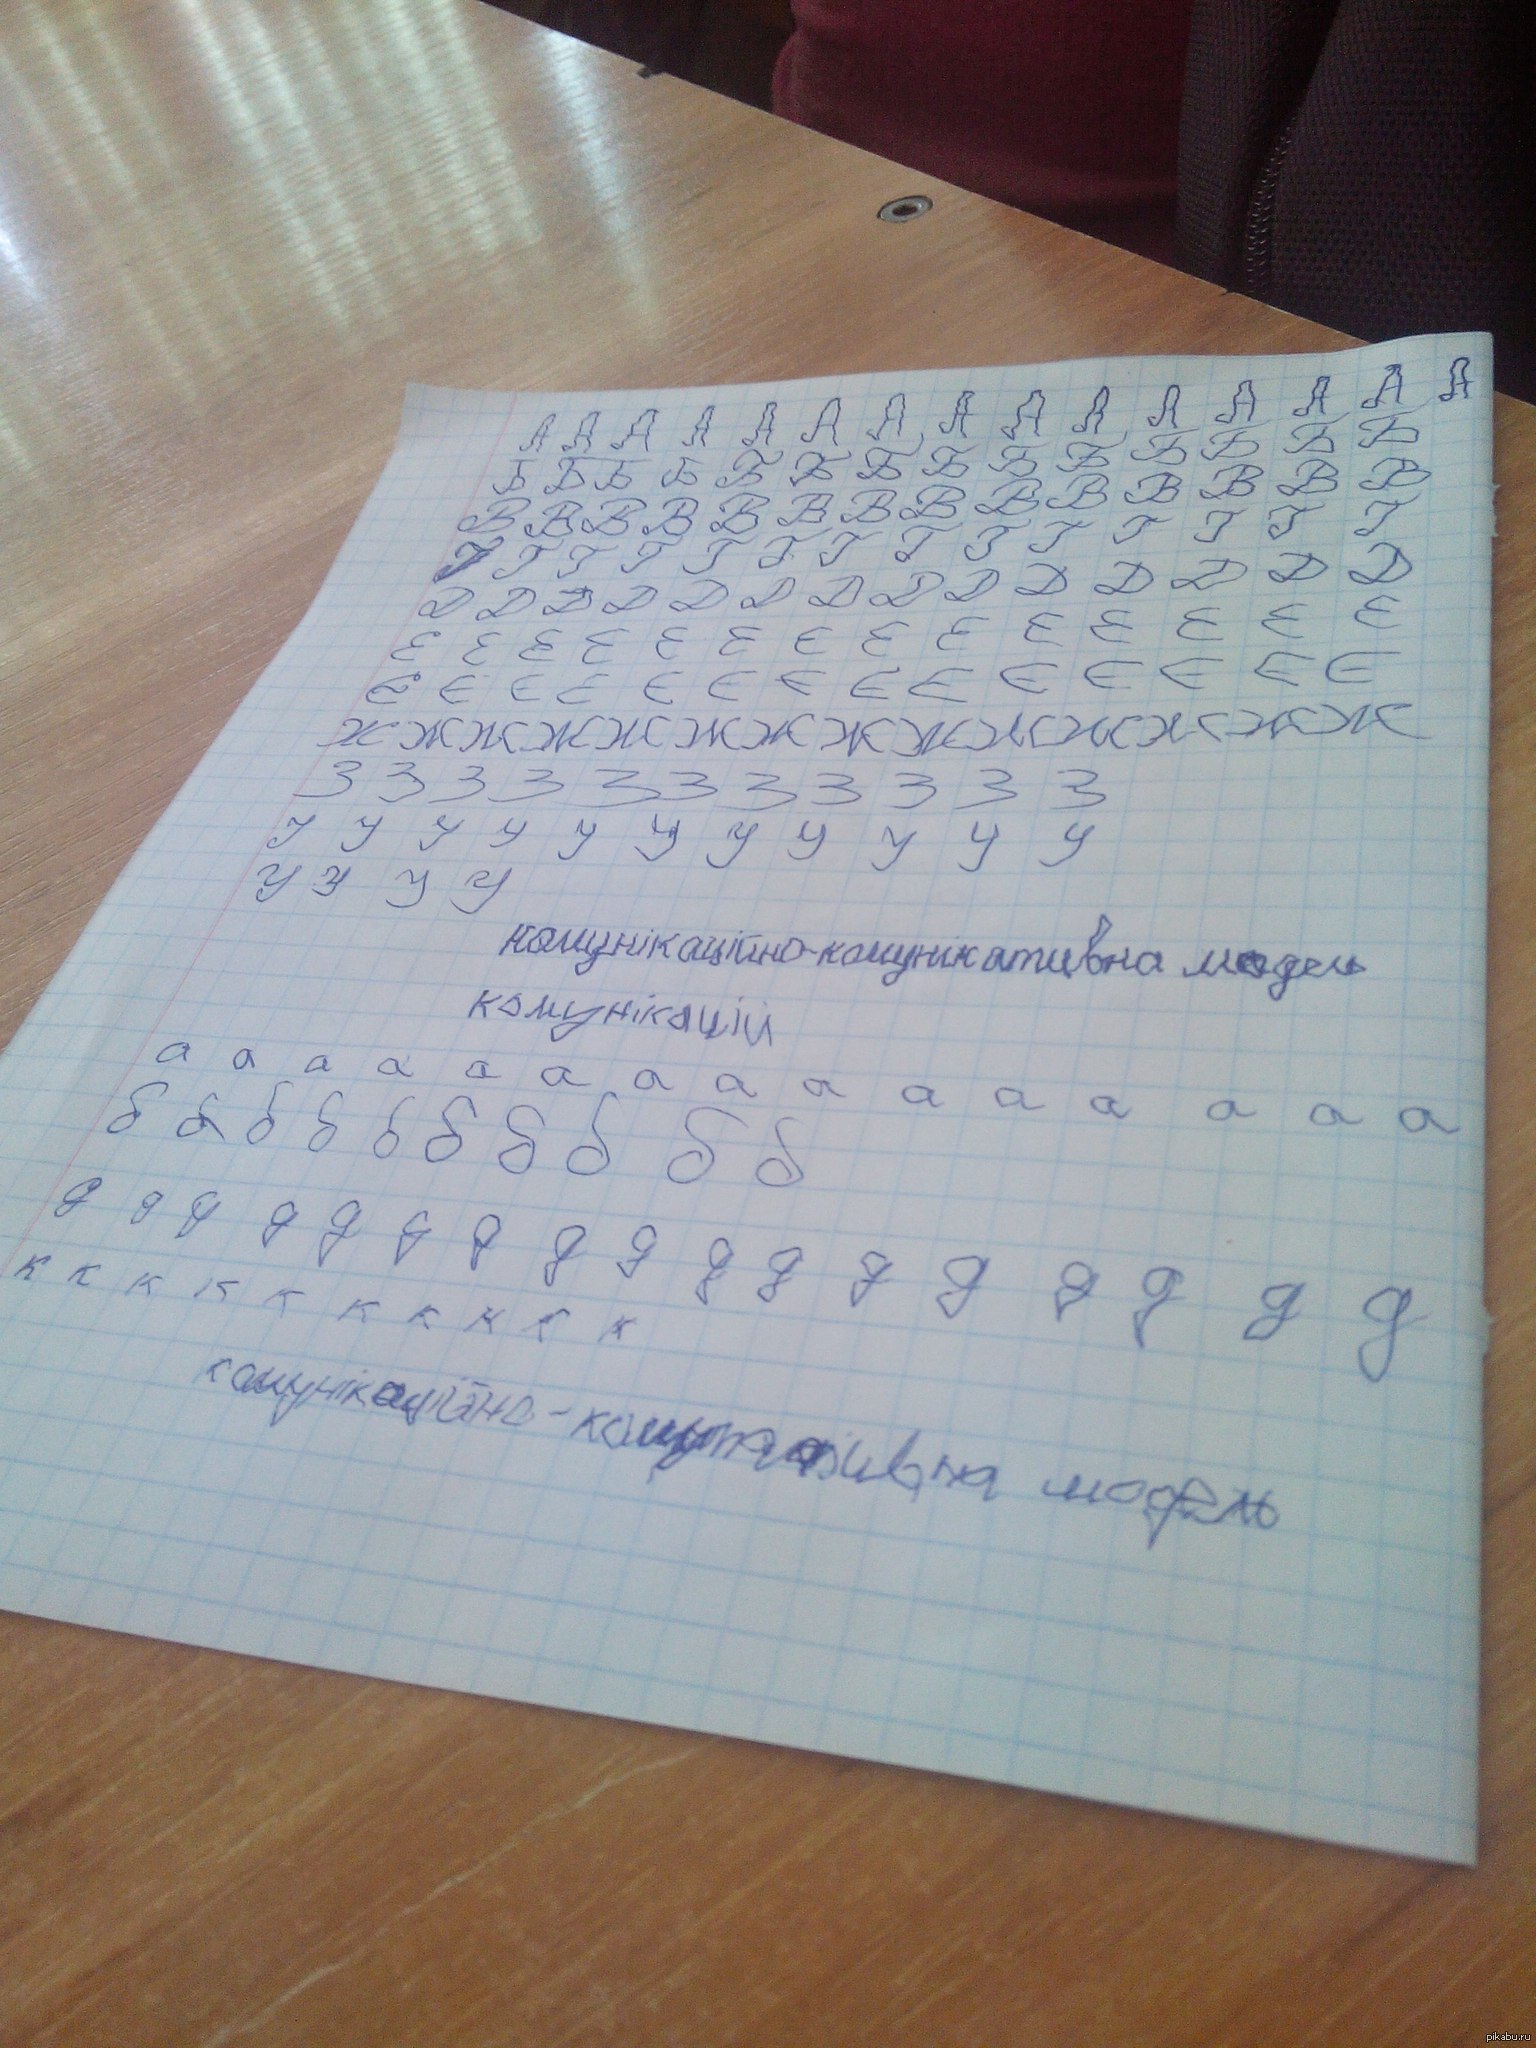 А А А А А А А А А А А А А А А
Б Б Б Б Б Б Б Б Б Б Б Б Б Б
В В В В В В В В В В В В В В
Г Г Г Г Г Г Г Г Г Г Г Г Г Г
Д Д Д Д Д Д Д Д Д Д Д Д Д Д
Е Е Е Е Е Е Е Е Е Е Е Е Е Е
Є Є Є Є Є Є Є Є Є Є Є Є Є Є
Ж Ж Ж Ж Ж Ж Ж Ж Ж Ж Ж Ж Ж Ж
З З З З З З З З З З З
У У У У У У У У У У У
У У У У
комунікаційно-комунікативна модель
комунікацій
а а а а а а а а а а а а а а а
б б б б б б б б б б
д д д д д д д д д д д д д д д д д
к к к к к к к к к к
комунікаційно- модель
pikabu.ru